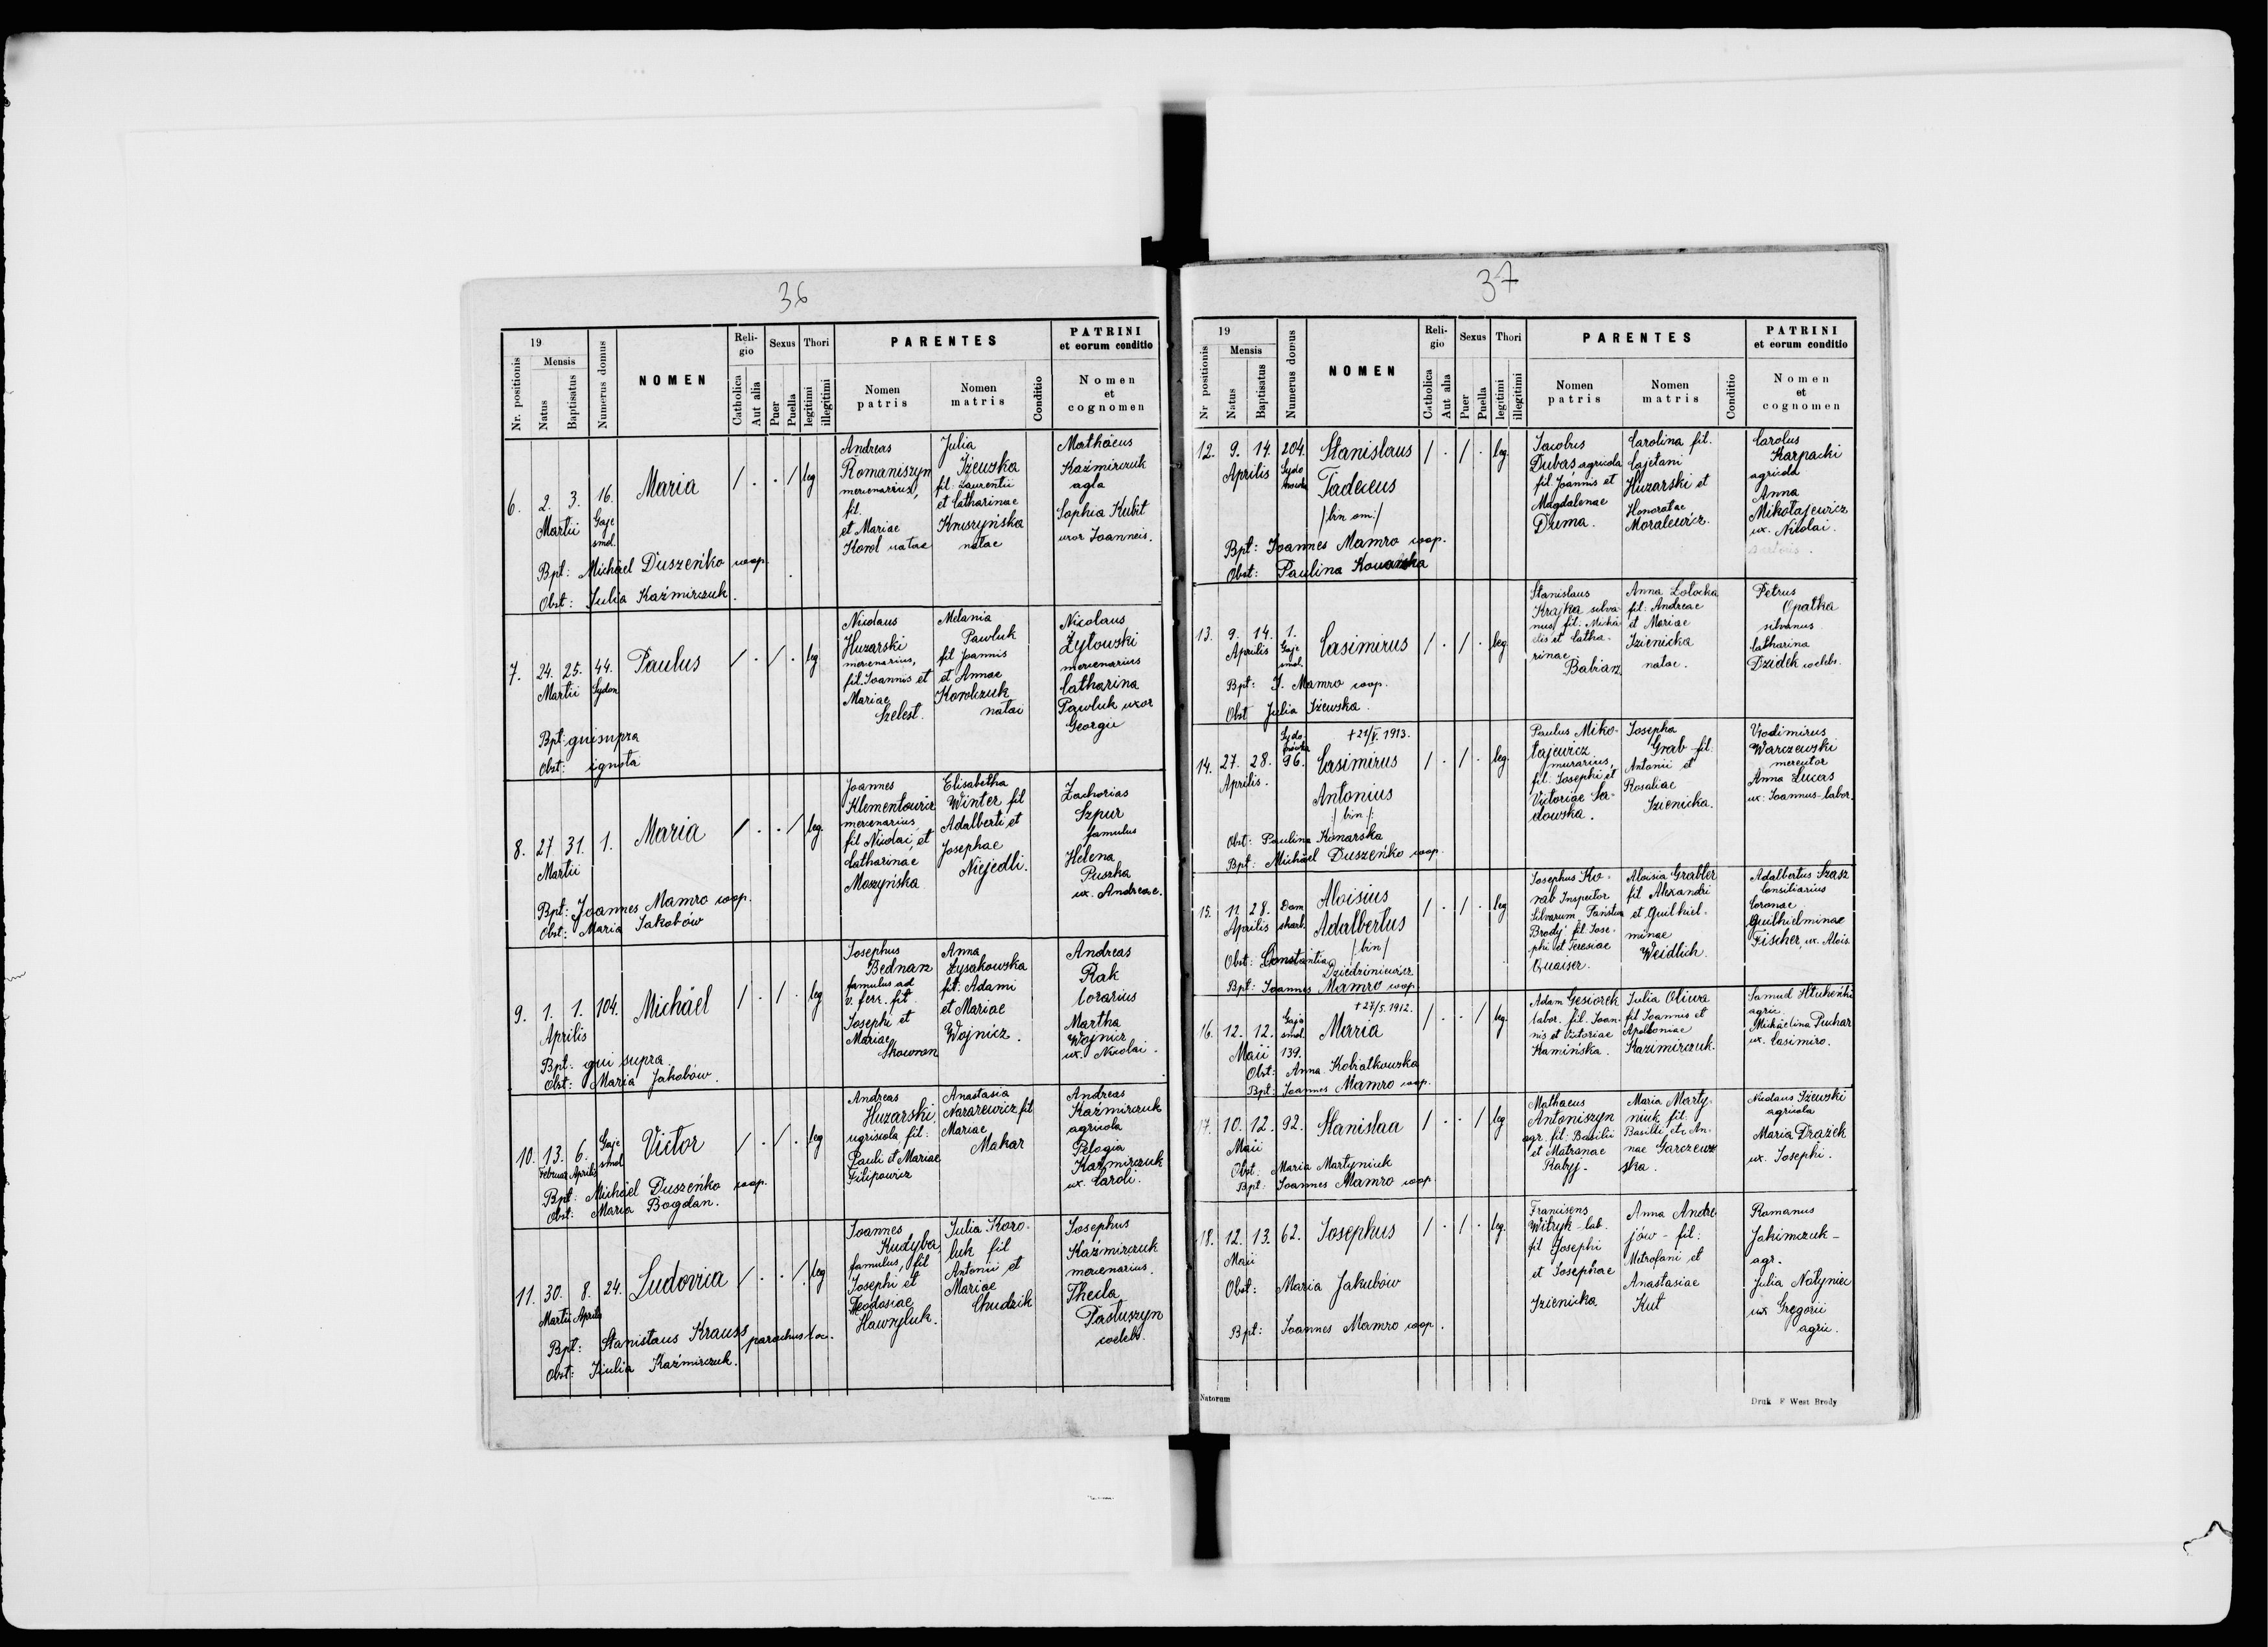 36
19
Mensis
Nr. positionis
Natus
Baptisatus
Numerus domus
NOMEN
Reli-
gio
Catholica
Aut alia
Sexus
Puer
Puella
Thori
legitimi
illegitimi
PARENTES
Nomen
patris
Nomen
matris
Conditio
PATRINI
et eorum conditio
Nomen
et
cognomen
6. 2. 3. 16. Maria / . . / leg
Martii Gaje
smol.
Andreas
Romaniszyn
mercenarius,
fil.
et Mariae
Korol natae
Julia
Iżewska
fil: Laurentii
et Catharinae
Kruszyńska
natae
Mathäeus
Kaźmirczuk
agla
Sophia Kubit
uxor Joannis.
Bpt: Michäel Duszeńko coop.
Obst: Julia Kaźmirczuk.
7. 24. 25. 44. Paulus / . / . leg
Martii Sydon
Nicolaus
Huzarski
mercenarius,
fil. Joannis et
Mariae
Szelest.
Melania
Pawluk
fil Joannis
et Annae
Korolczuk
natae
Nicolaus
Żytowski
mercenarius
Catharina
Pawluk uxor
Georgii
Bpt: qui supra
Obst: ignota
8. 27 31. 1. Maria / . . / leg.
Martii
Joannes
Klementowicz
mercenarius
fil Nicolai, et
Catharinae
Moszyńska
Elisabetha
Winter fil
Adalberti, et
Josephae
Niejedli.
Zacharias
Szpur
famulus
Helena
Puszka
ux. Andreae.
Bpt: Joannes Mamro coop.
Obst: Maria Jakobów
9. 1. 1. 104. Michäel / . / . leg
Aprilis
Josephus
Bednarz
famulus ad
v. ferr. fil.
Josephi et
Mariae
Skowron
Anna
Łysakowska
fil: Adami
et Mariae
Wojnicz.
Andreas
Rak
lorarius
Martha
Wojnicz
ux. Nicolai.
Bpt: qui supra.
Obst: Maria Jakobów.
10. 13. 6. Gaje Victor / . / . leg
Februar Aprilis smol
Andreas
Huzarski
agricola, fil:
Pauli et Mariae
Filipowicz
Anastasia
Nazarewicz fil
Mariae
Makar
Andreas
Kaźmirczuk
agricola
Pelagia
Kaźmirczuk
ux. Caroli.
Bpt: Michäel Duszeńko coop.
Obst: Maria Bogdan.
11. 30. 8. 24. Ludovica / . . / leg
Martii Aprilis
Joannes
Kudyba
famulus, fil
Josephi et
Teodosiae
Hawryluk.
Julia Koro-
luk fil
Antonii et
Mariae
Chudzik
Josephus
Kaźmirczuk
mercenarius.
Thecla
Pastuszyn
coelebs.
Bpt: Stanislaus Krauss parochus loc.
Obst: Julia Kaźmirczuk.
37
19
Mensis
Nr positionis
Natus
Baptisatus
Numerus domus
NOMEN
Reli-
gio
Catholica
Aut alia
Sexus
Puer
Puella
Thori
legitimi
illegitimi
PARENTES
Nomen
patris
Nomen
matris
Conditio
PATRINI
et eorum conditio
Nomen
et
cognomen
12. 9. 14. 204. Stanislaus / . / . leg
Aprilis Sydo
Tadaeus
Jacobus
Dubas agricola
fil. Joannis et
Magdalenae
Duma.
Carolina fil.
Cajetani
Huzarski et
Honoratae
Moralewicz.
Carolus
Karpacki
agricola
Anna
Mikołajewicz,
ux. Nicolai.
Bpt: Joannes Mamro coop.
Obst: Paulina
13. 9. 14. 1. Casimirus / . / . leg
Aprilis Gaje
smol.
Stanislaus
Krajka silva-
nus, fil. Micha-
elis et Catha-
rinae
Babiarz
Anna Zolocka
fil: Andreae
et Mariae
Izienicka
natae.
Petrus
Opatka
silvanus
Catharina
Dzidek coelebs.
Bpt: J. Mamro coop.
Obst Julia Iżewska.
14. 27. 28. 96. Casimirus / . / . leg.
Aprilis.
Antonius
/bin/:
Paulus Miko-
łajewicz
murarius,
fil. Josephi et
Victoriae Sa-
dowska.
Josepha
Grab fil.
Antonii et
Rosaliae
Izienicka.
Vlodimirus
Warczewski
mercator
Anna Lucas
ux: Joannis labor.
Obst: Paulina Konarska
Bpt: Michäel Duszeńko coop.
15. 11. 28. Dom Aloisius / . / . leg
Aprilis skarb. Adalbertus
/bin/
Josephus Ko-
rab Inspector
Silvarum Państwa
Brody fil. Jose-
phi et Teresiae
Quaiser.
Aloisia Grabler
fil Alexandri
et Guilhiel-
minae
Weidlich.
Adalbertus Szasz
Consiliarius
Coronae
Guilhielminae
Fischer, ux. Alois.
Obst: Constantia
Bpt: Joannes Mamro coop.
† 27/5. 1912.
16. 12. 12. Gaje Maria / . . / leg.
Maii smol. 139.
Adam Gesiorek
labor. fil. Joan-
nis et Victoriae
Kamińska.
Julia Oliwa
fil Joannis et
Apolloniae
Kazimirczuk.
Samuel
agric.
Michäelina Puchar
ux. Casimiro.
Obst: Anna Kobiatkowska
Bpt: Joannes Mamro coop.
17. 10. 12. 92. Stanislaa / . . / leg
Maii
Mathaeus
Antoniszyn
agr. fil. Basilii
et Matronae
Rabyj.
Maria Marty-
niuk, fil.
Basilii et An-
nae Garczew-
ska.
Nicolaus Iżewski
agricola
Maria Drażek
ux. Josephi.
Obst. Maria Martyniuk
Bpt: Joannes Mamro coop
18. 12. 13. 62. Josephus / . / . leg.
Maii
Franciscus
Witryk lab.
fil Josephi
et Josephae
Izienicka
Anna Andre-
jów fil:
Mitrofani et
Anastasiae
Kut
Romanus
Jakimczuk-
agr.
Julia Natyniec
ux Gregorii
agric.
Obst: Maria Jakubów
Bpt: Joannes Mamro coop.
Natorum
Druk F West Brody